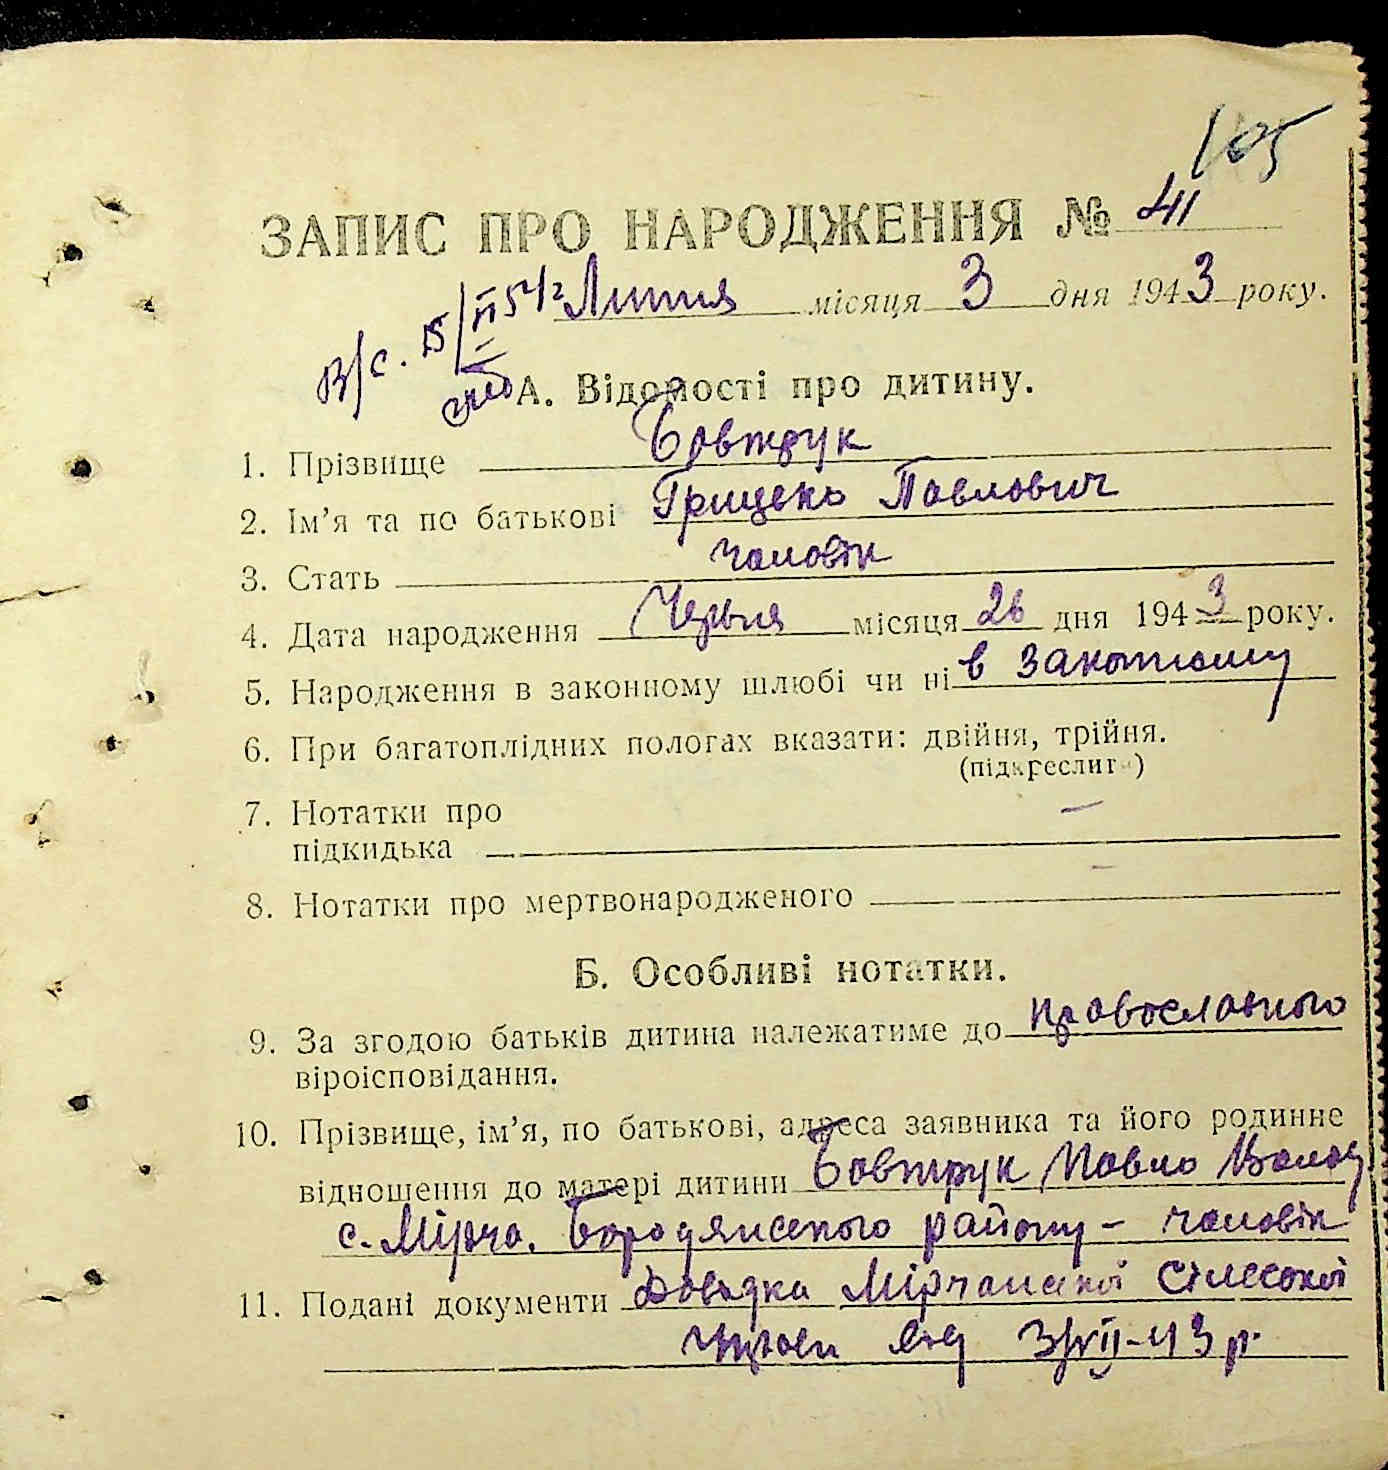 105
ЗАПИС ПРО НАРОДЖЕННЯ № 41
Липня місяця 3 дня 1943 року.
В/с. 15/VI 54/2
А. Відомості про дитину.
1. Прізвище Бовтрук
2. Ім'я та по батькові Грицько Павлович
3. Стать чоловік
4. Дата народження Червня місяця 26 дня 1943 року.
5. Народження в законному шлюбі чи ні в законному
6. При багатоплідних пологах вказати: двійня, трійня.
(підкреслити)
7. Нотатки про
підкидька —
8. Нотатки про мертвонародженого —
Б. Особливі нотатки.
9. За згодою батьків дитина належатиме до православного
віроісповідання.
10. Прізвище, ім'я, по батькові, адреса заявника та його родинне
відношення до матері дитини Бовтрук Павло Волод
с. Мірча. Бородянського району – чоловік
11. Подані документи Довідка Мірчанської сільської
управи від 3/VII-43 р.